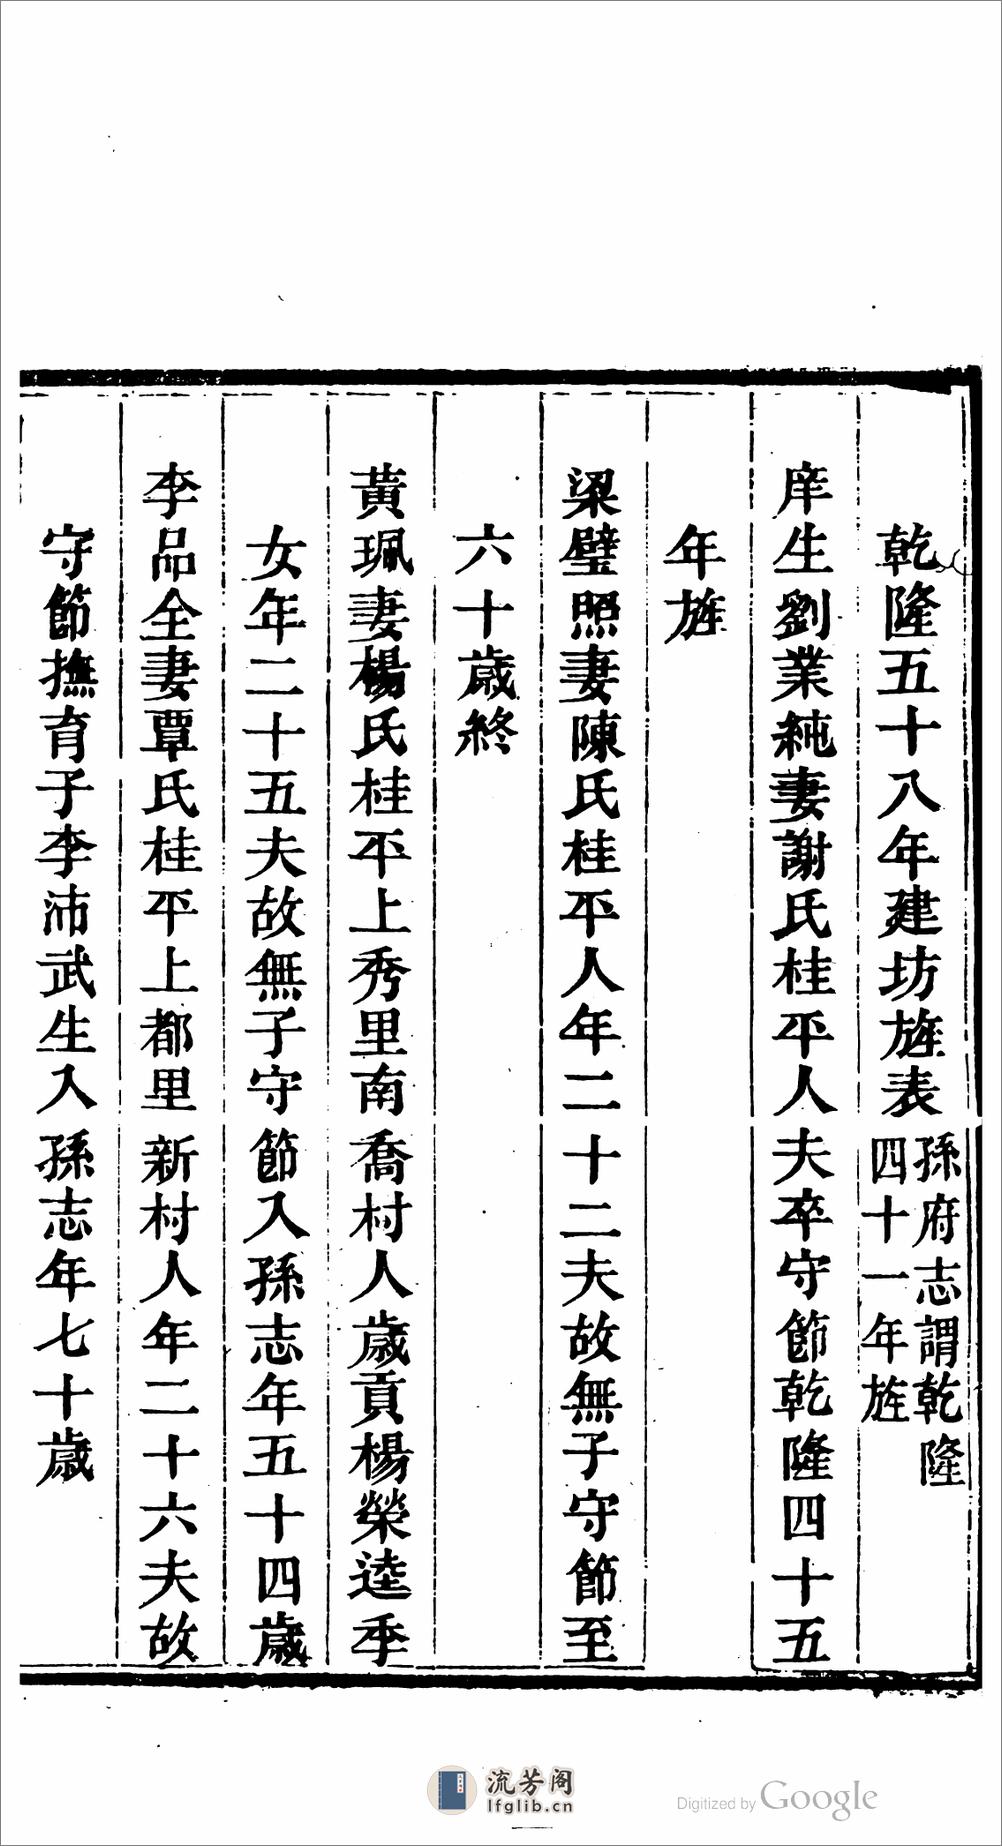 乾隆五十八年建坊旌表孫府志謂乾隆
四十一年旌
庠生劉業純妻謝氏桂平人夫卒守節乾隆四十五
年旌
梁璧照妻陳氏桂平人年二十二夫故無子守節至
六十歲終
黃珮妻楊氏桂平上秀里南喬村人歲貢楊榮逵季
女年二十五夫故無子守節入孫志年五十四歲
李品全妻覃氏桂平上都里新村人年二十六夫故
守節撫育子李沛武生入孫志年七十歲
流芳阁
lfglib.cn
Digitized by Google